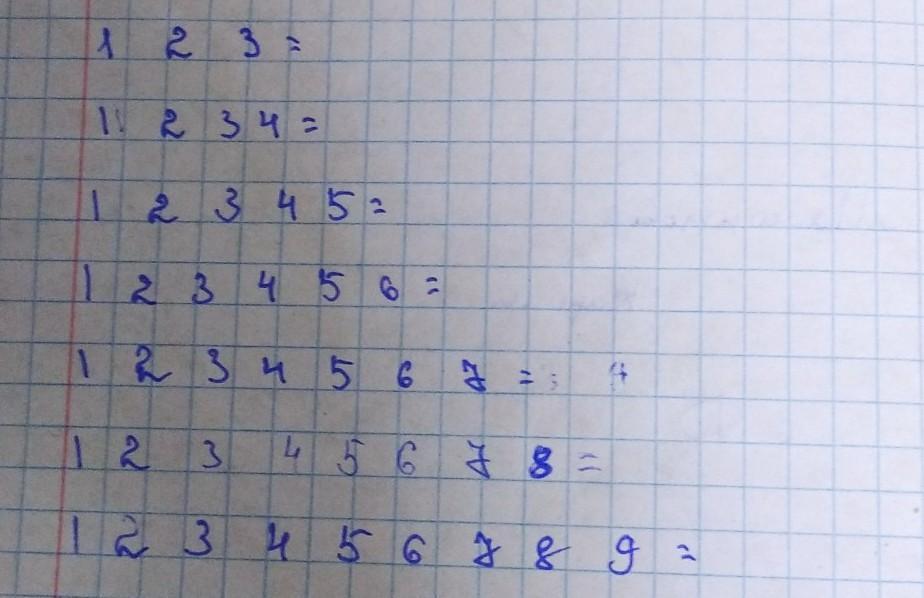 1 2 3 =
1 2 3 4 =
1 2 3 4 5 =
1 2 3 4 5 6 =
1 2 3 4 5 6 7 =
1 2 3 4 5 6 7 8 =
1 2 3 4 5 6 7 8 9 =